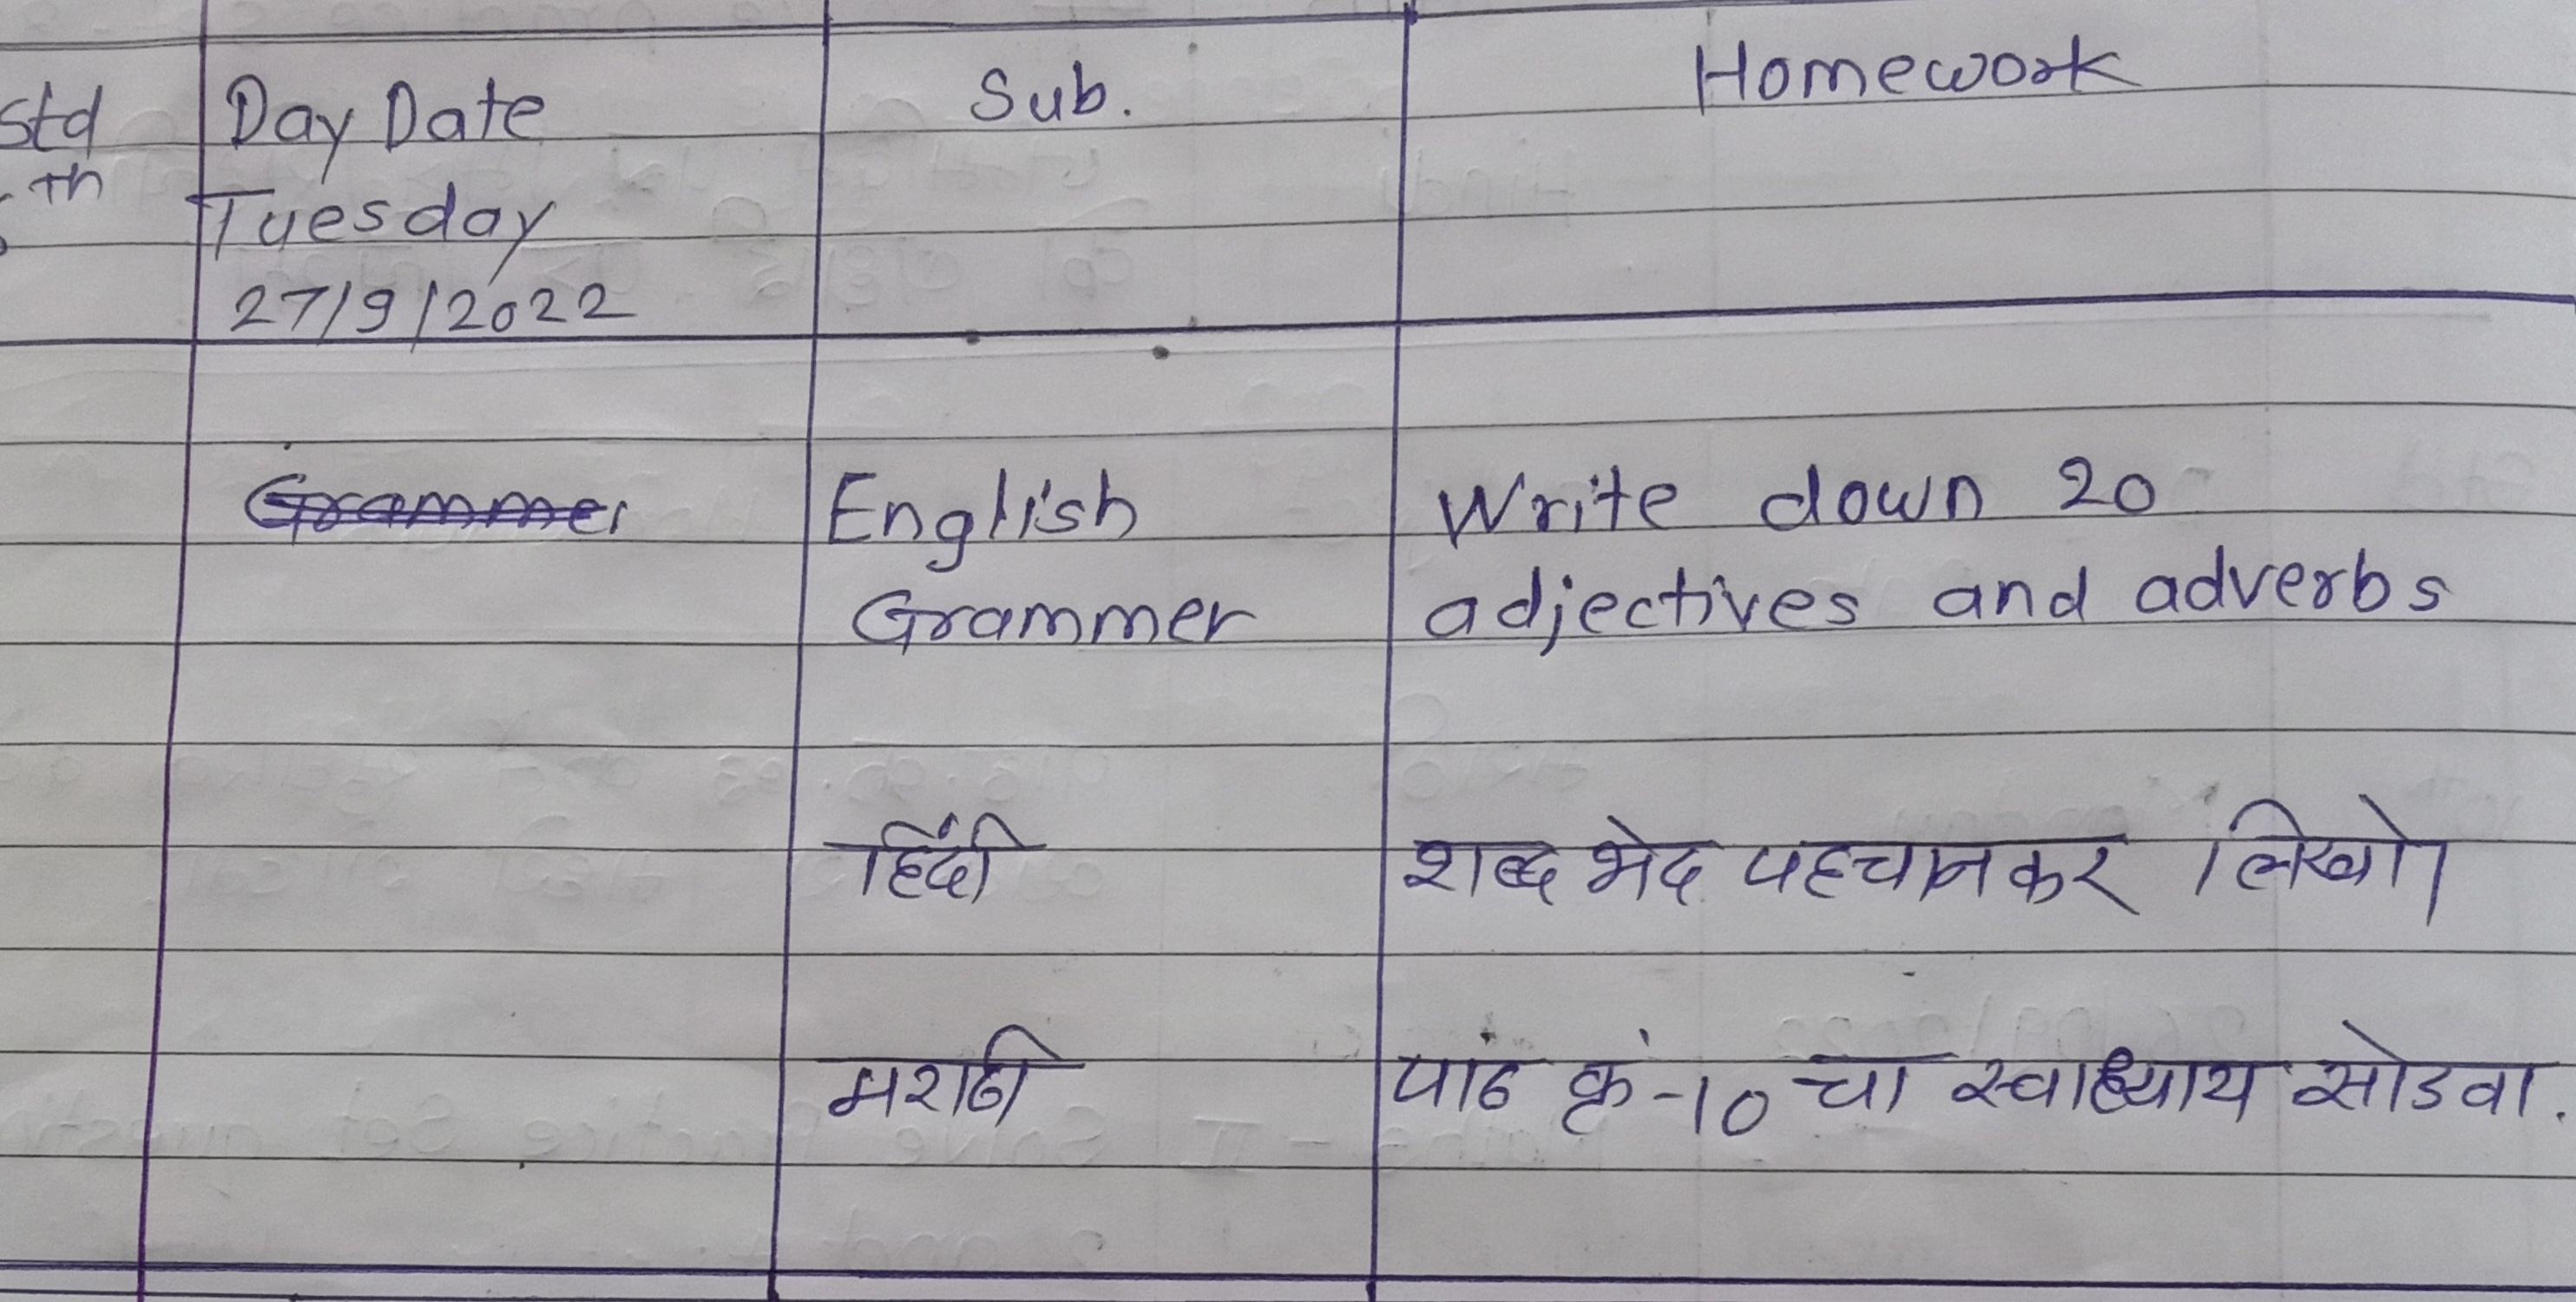 Std Day Date Sub. Homework
th Tuesday
27/9/2022
Grammer English Write down 20
Grammer adjectives and adverbs
हिंदी शब्द भेद पहचानकर लिखो।
मराठी पाठ क्रं-10 चा स्वाध्याय सोडवा.